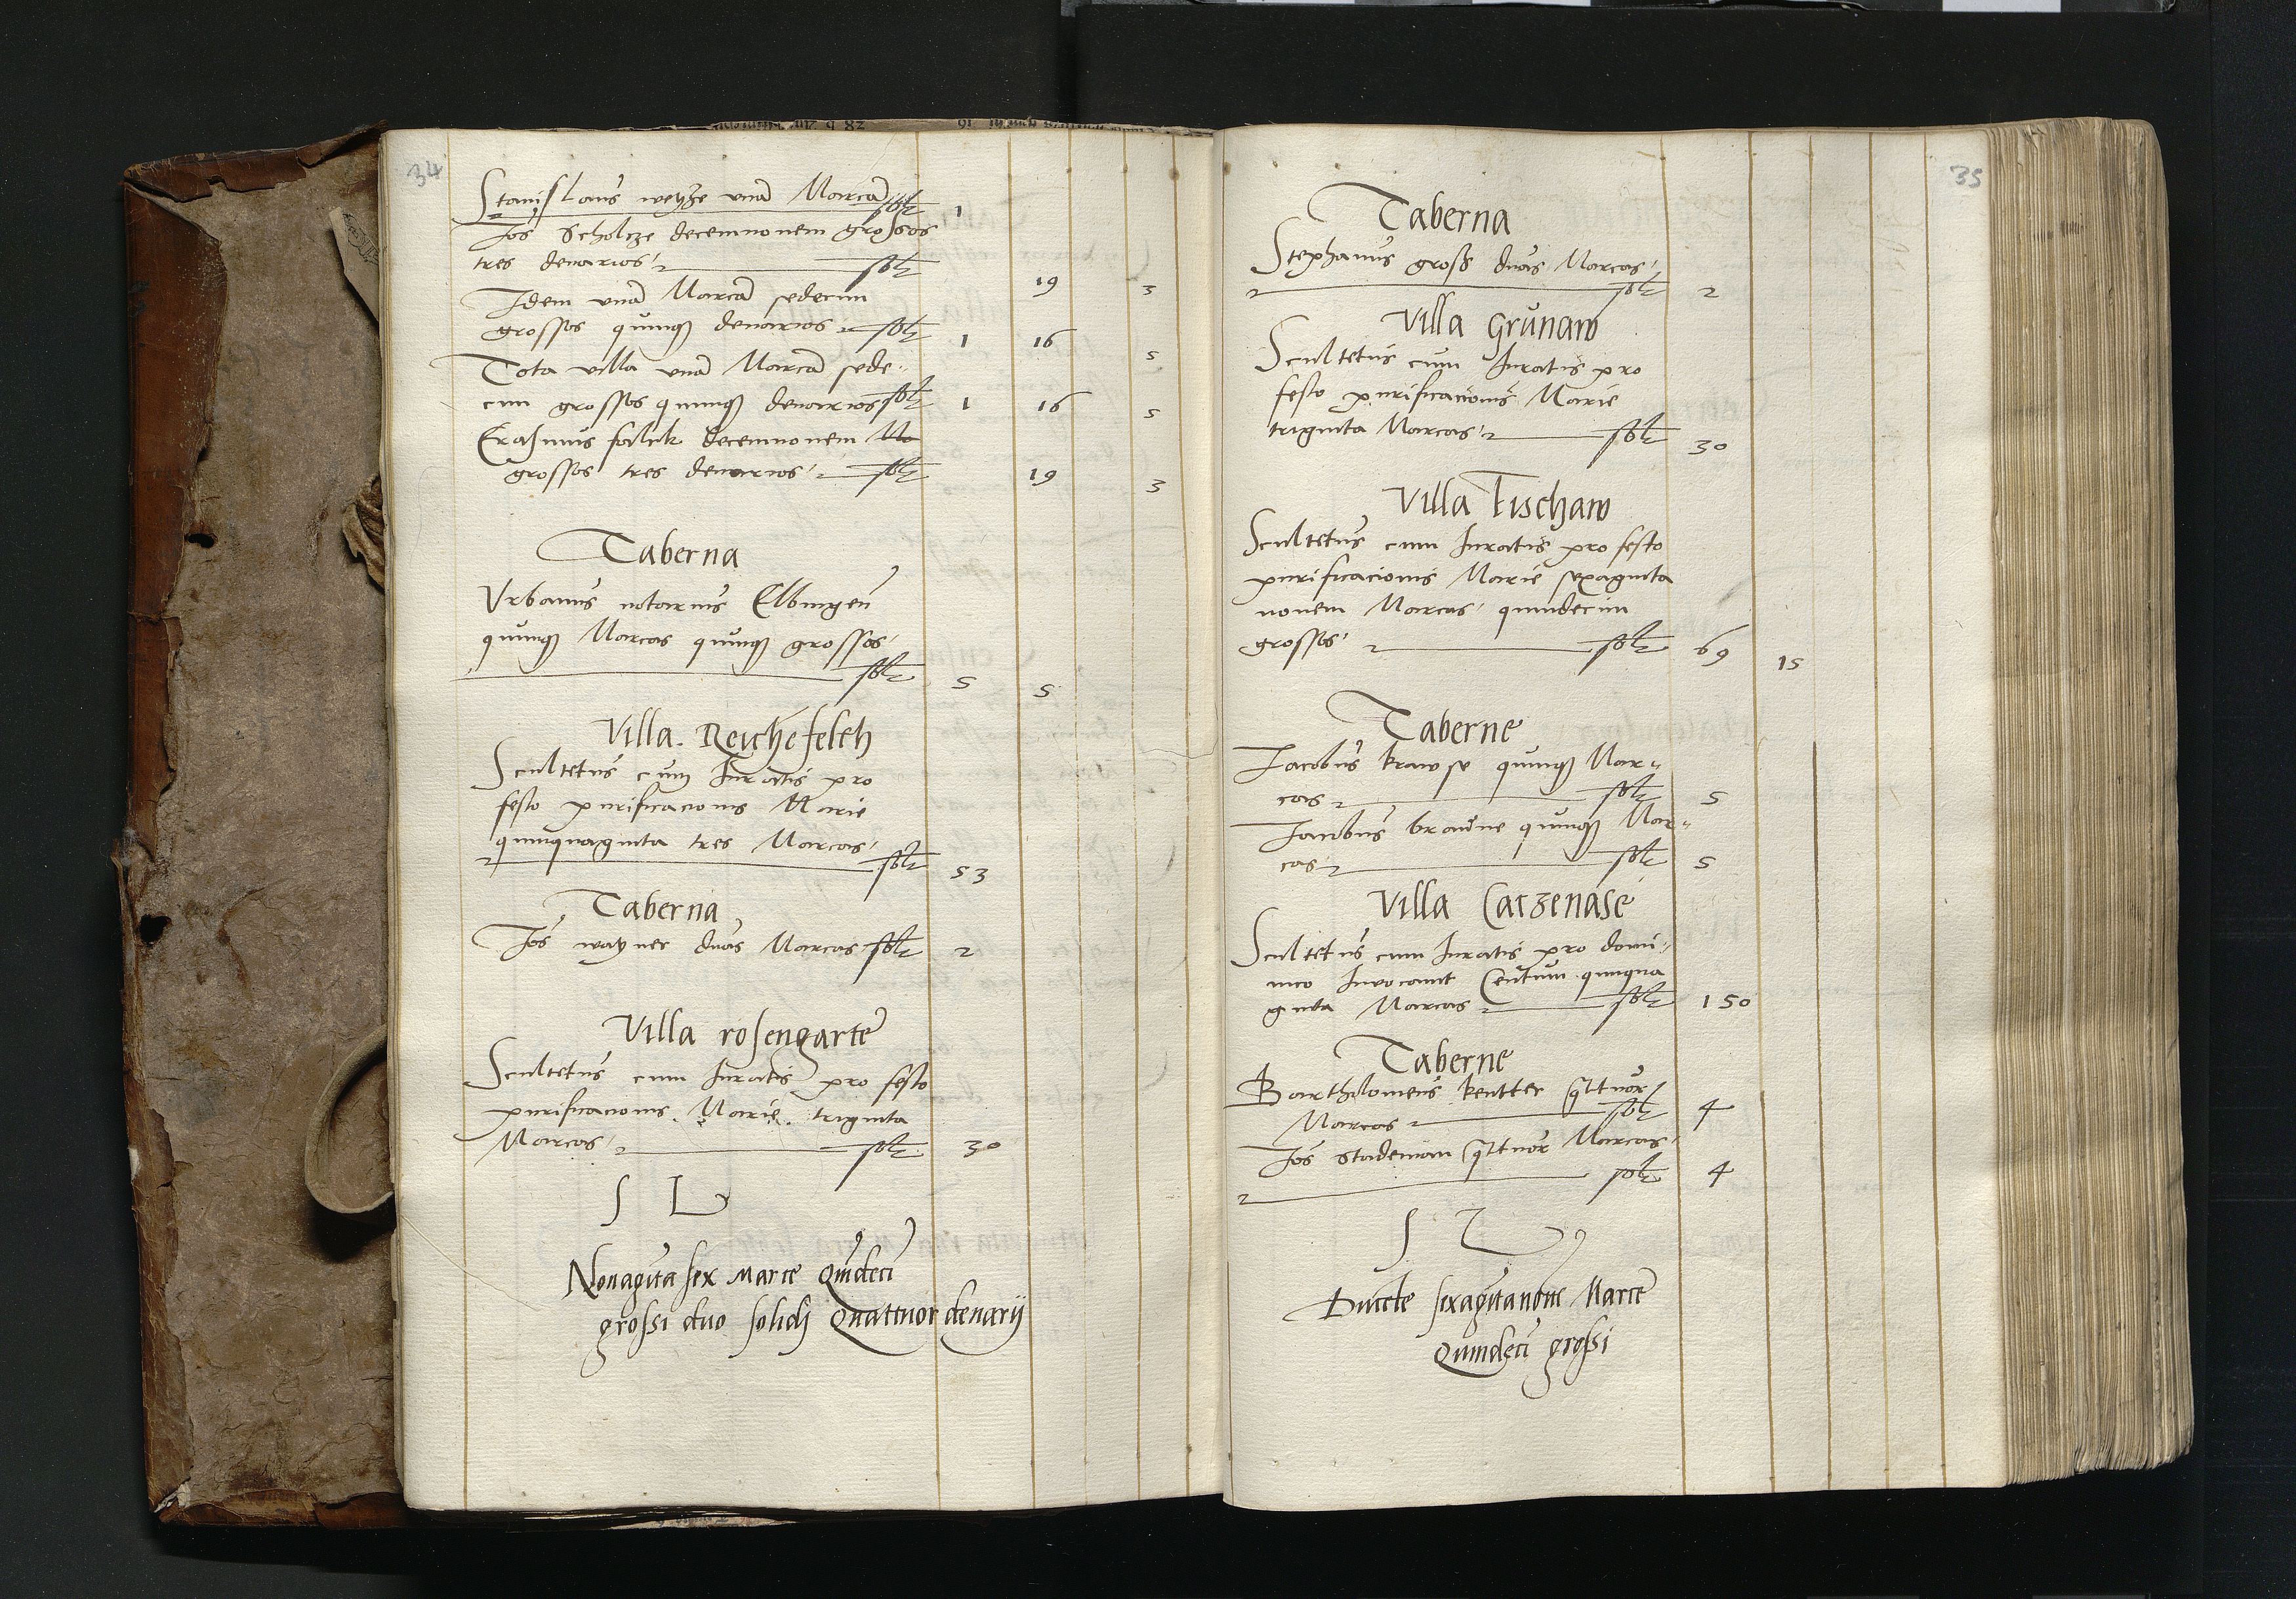 34
Stanislaus weysze vnā Marcā solt 1
Jos Scholtze decemnouem grossos
tres denarios solt 19 3
Idem vnā Marcā sedecim
grossos quinq denarios solt 1 16 5
Tota villa vnā Marcā sede-
cim grossos quinq denarios solt 1 16 5
Erasmus falck decemnouem Ma
grossos tres denarios solt 19 3
Taberna
Vrbanus notarius Elbingen
quinq Marcas quinq grossos
solt 5 5
Villa Reichefelth
Scultetus cum Iuratis pro
festo purificacionis Marie
quinquaginta tres Marcas
solt 53
Taberna
Jos watzner duas Marcas solt 2
Villa rosengartē
Scultetus cum Iuratis pro festo
purificacionis Marie triginta
Marcas solt 30
S L
Nonagīta sex Marce Quīdecī
grossi duo solidi Quattuor denarij
35
Taberna
Stephanus gross duas Marcas
solt 2
Villa Grunaw
Scultetus cum Iuratis pro
festo purificacionis Marie
triginta Marcas solt 30
Villa Fischaw
Scultetus cum Iuratis pro festo
purificacionis Marie sexaginta
nouem Marcas quindecim
grossos solt 69 15
Taberne
Jacobus krawse quinq Mar-
cas solt 5
Jacobus braune quinq Mar-
cas solt 5
Villa Catzenase
Scultetus cum Iuratis pro domi-
nico Inuocauit Centum quinqua
ginta Marcas solt 150
Taberne
Bartholomeus kentter qttuor
Marcas solt 4
Jos stademan qttuor Marcas
solt 4
S L
Ducēte sexagītanoue Marce
Quindecī grossi